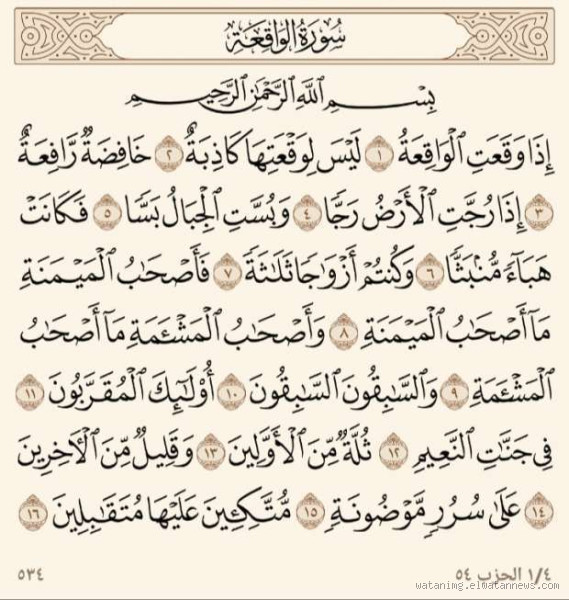 سُورَةُ الوَاقِعَةِ
بِسْمِ ٱللَّهِ ٱلرَّحْمَٰنِ ٱلرَّحِيمِ
إِذَا وَقَعَتِ ٱلْوَاقِعَةُ ١ لَيْسَ لِوَقْعَتِهَا كَاذِبَةٌ ٢ خَافِضَةٌ رَّافِعَةٌ
٣ إِذَا رُجَّتِ ٱلْأَرْضُ رَجًّا ٤ وَبُسَّتِ ٱلْجِبَالُ بَسًّا ٥ فَكَانَتْ
هَبَآءً مُّنۢبَثًّا ٦ وَكُنتُمْ أَزْوَٰجًا ثَلَٰثَةً ٧ فَأَصْحَٰبُ ٱلْمَيْمَنَةِ
مَآ أَصْحَٰبُ ٱلْمَيْمَنَةِ ٨ وَأَصْحَٰبُ ٱلْمَشْـَٔمَةِ مَآ أَصْحَٰبُ
ٱلْمَشْـَٔمَةِ ٩ وَٱلسَّٰبِقُونَ ٱلسَّٰبِقُونَ ١٠ أُو۟لَٰٓئِكَ ٱلْمُقَرَّبُونَ ١١
فِى جَنَّٰتِ ٱلنَّعِيمِ ١٢ ثُلَّةٌ مِّنَ ٱلْأَوَّلِينَ ١٣ وَقَلِيلٌ مِّنَ ٱلْـَٔاخِرِينَ
١٤ عَلَىٰ سُرُرٍ مَّوْضُونَةٍ ١٥ مُّتَّكِـِٔينَ عَلَيْهَا مُتَقَٰبِلِينَ ١٦
١/٤ الحزب ٥٤
٥٣٤
watanimg.elwatannews.com